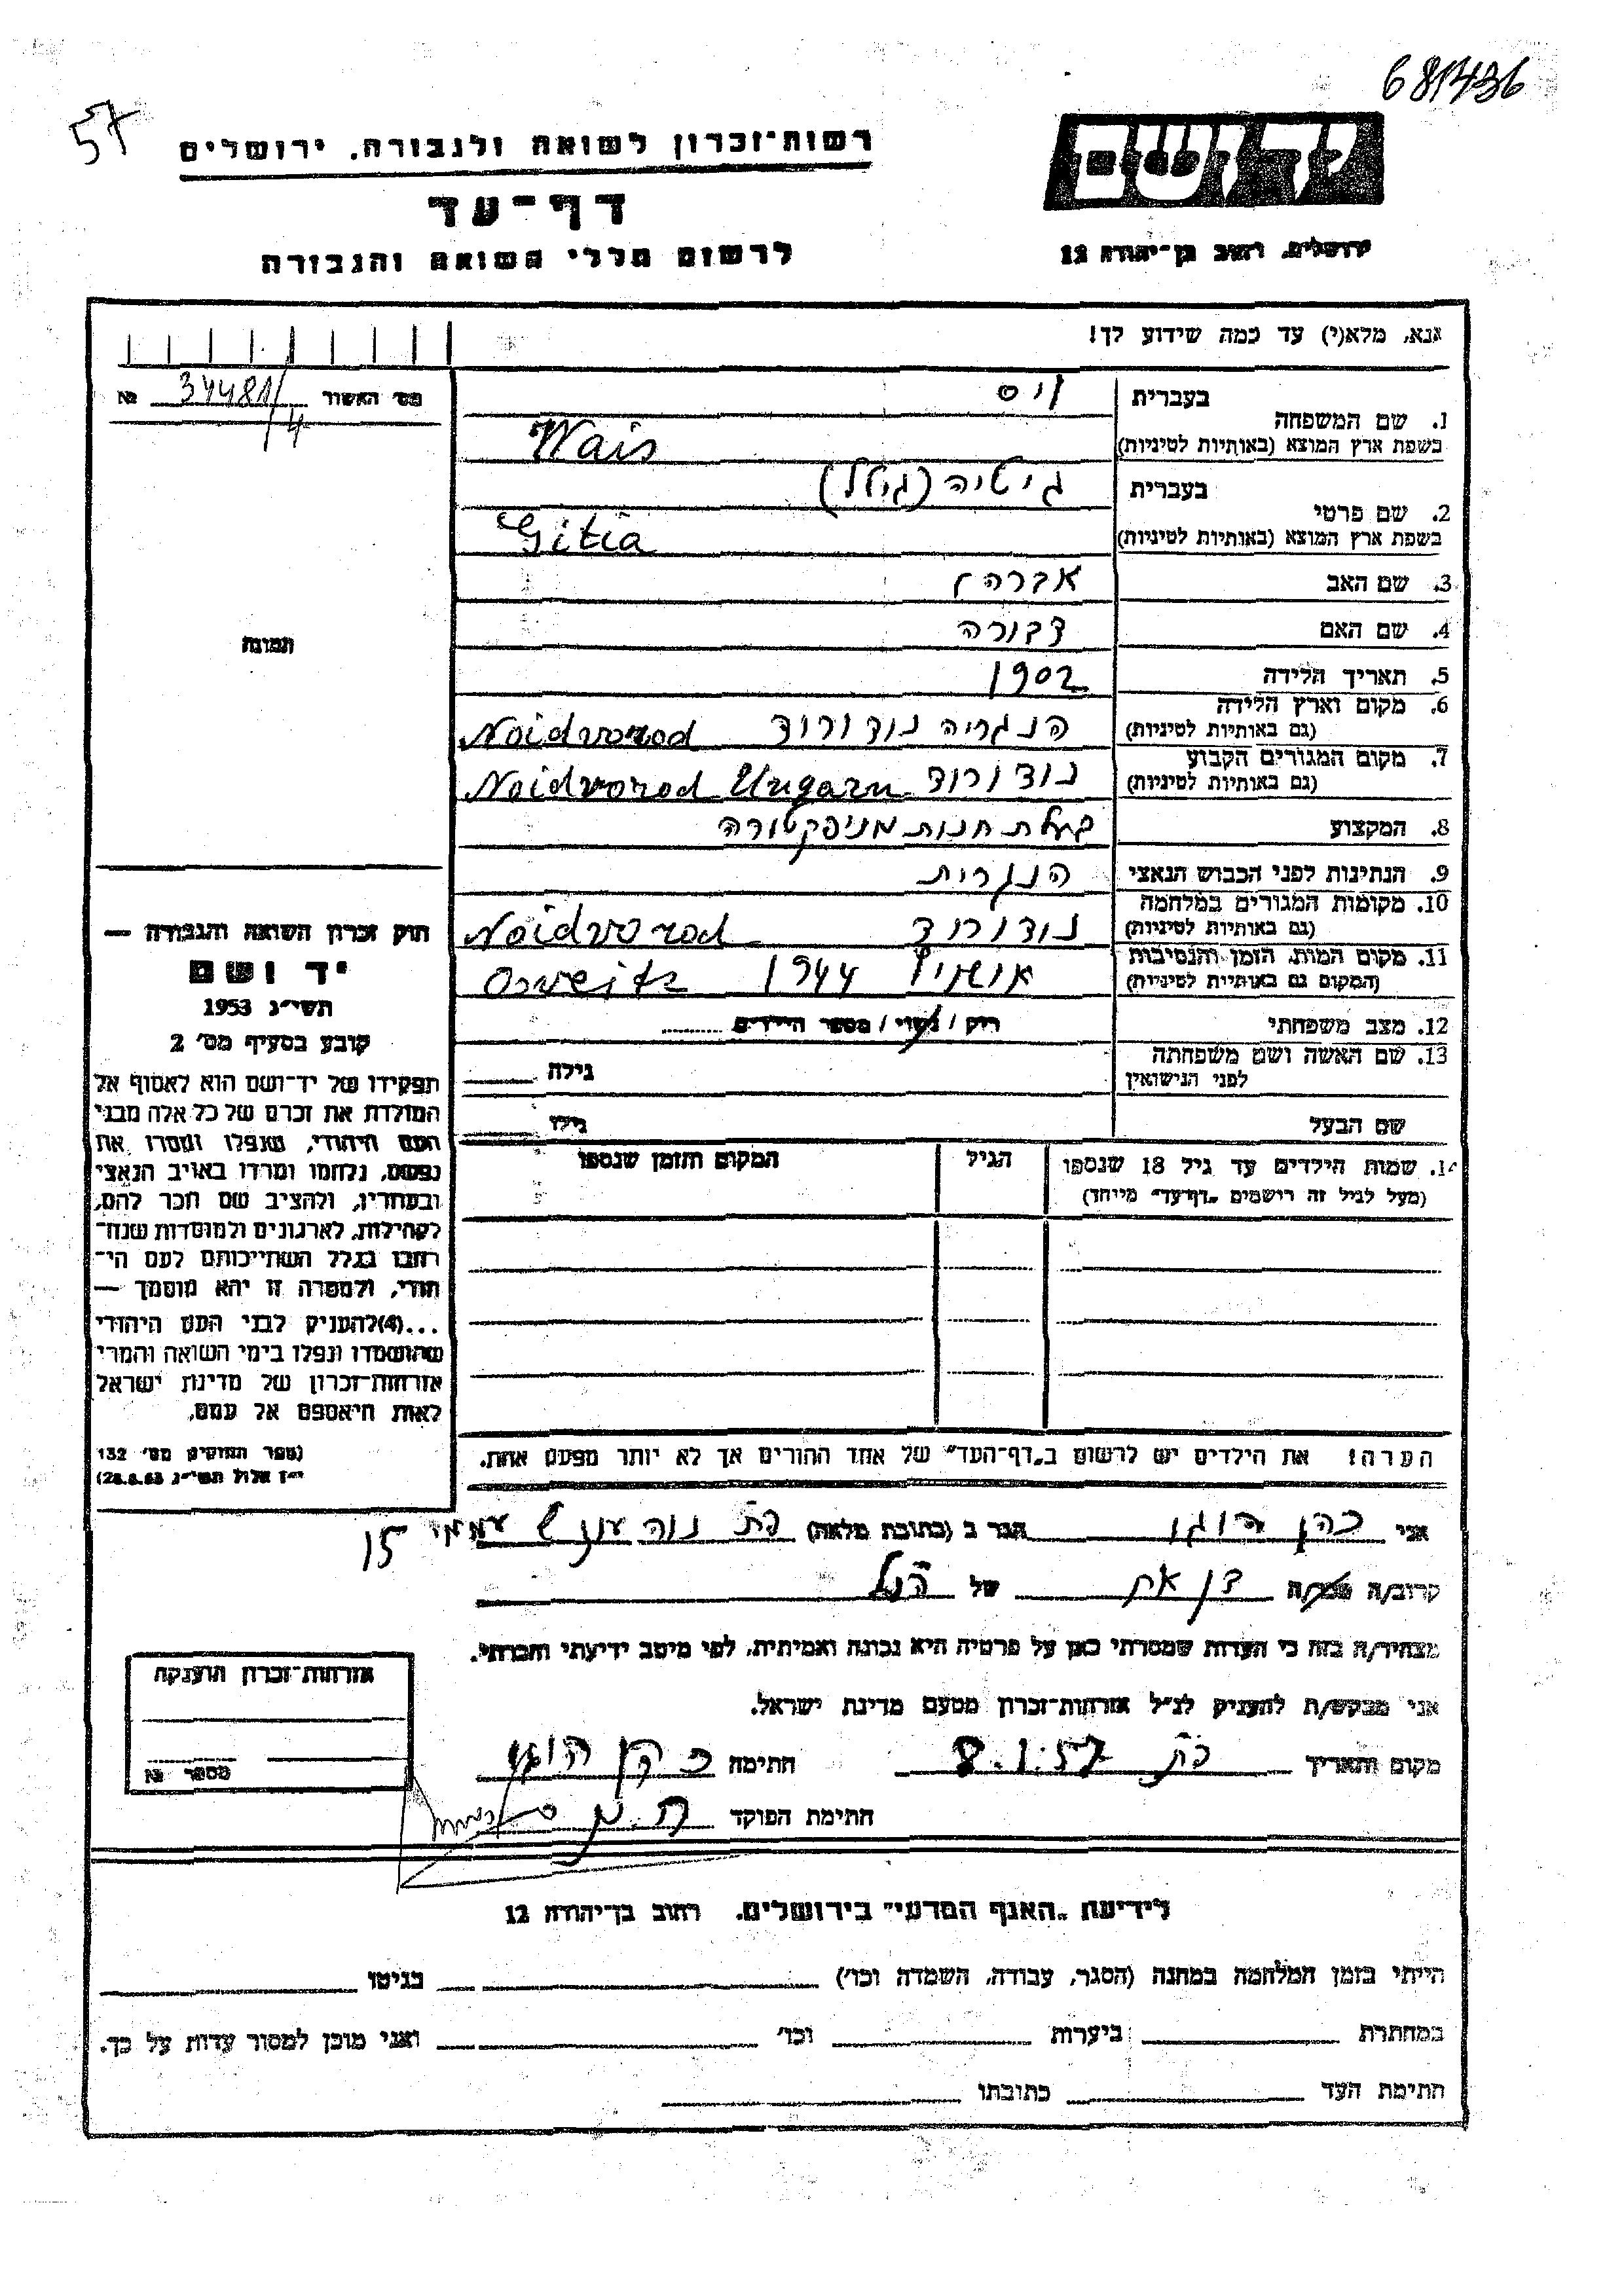 681436
57
יד ושם
רשות־זכרון לשואה ולגבורה. ירושלים
ירושלים. רחוב בן־יהודה 12
דף־עד
לרשום חללי השואה והגבורה
אנא, מלא(י) עד כמה שידוע לך!
מס׳ האשור 34481/4 №
1. שם המשפחה
בעברית ויס
בשפת ארץ המוצא (באותיות לטיניות) Wais
2. שם פרטי
בעברית גיטיה (גיזל)
בשפת ארץ המוצא (באותיות לטיניות) Gitia
3. שם האב אברהם
4. שם האם דבורה
5. תאריך הלידה 1902
6. מקום וארץ הלידה
(גם באותיות לטיניות) הנגריה נודורוד Noidvorod
7. מקום המגורים הקבוע
(גם באותיות לטיניות) נודורוד Noidvorod Ungarn
8. המקצוע בעלת חנות מניפקטורה
9. הנתינות לפני הכבוש הנאצי הנגרית
10. מקומות המגורים במלחמה
(גם באותיות לטיניות) נודורוד Noidvorod
11. מקום המות, הזמן והנסיבות
(המקום גם באותיות לטיניות) אושויץ 1944 Osweitz
12. מצב משפחתי רווק / נשוי / מספר הילדים
13. שם האשה ושם משפחתה
לפני הנישואין גילה
שם הבעל גילו
14. שמות הילדים עד גיל 18 שנספו
(מעל לגיל זה רישמים „דף־עד״ מייחד)
הגיל
המקום והזמן שנספו
הערה! את הילדים יש לרשום ב„דף־העד״ של אחד ההורים אך לא יותר מפעם אחת.
תמונה
חוק זכרון השואה והגבורה —
יד ושם
תשי״ג 1953
קובע בסעיף מס׳ 2
תפקידו של יד־ושם הוא לאסוף אל
המולדת את זכרם של כל אלה מבני
העם היהודי, שנפלו ומסרו את
נפשם, נלחמו ומרדו באויב הנאצי
ובעוזריו, ולהציב שם וזכר להם,
לקהילות, לארגונים ולמוסדות שנח־
רבו בגלל השתייכותם לעם הי־
הודי, ולמטרה זו יהא מוסמך —
...(4)להעניק לבני העם היהודי
שהושמדו ונפלו בימי השואה והמרי
אזרחות־זכרון של מדינת ישראל
לאות היאספם אל עמם.
(ספר החוקים מס׳ 132
י״ז אלול תשי״ג 28.8.53)
אני כהן הוגו הגר ב (כתובת מלאה) פת נוה עוני ש עממי 15
קרוב/ה מכר/ה של הנ״ל
מצהיר/ה בזה כי העדות שמסרתי כאן על פרטיה היא נכונה ואמיתית, לפי מיטב ידיעתי והכרתי.
אני מבקש/ת להעניק לנ״ל אזרחות־זכרון מטעם מדינת ישראל.
מקום ותאריך פת 8.1.57 חתימה כהן הוגו
חתימת הפוקד
אזרחות־זכרון הוענקה
מספר №
לידיעת „האגף המדעי״ בירושלים. רחוב בן־יהודה 12
הייתי בזמן המלחמה במחנה (הסגר, עבודה, השמדה וכו׳) בגיטו
במחתרת ביערות וכו׳ ואני מוכן למסור עדות על כך.
חתימת העד כתובתו